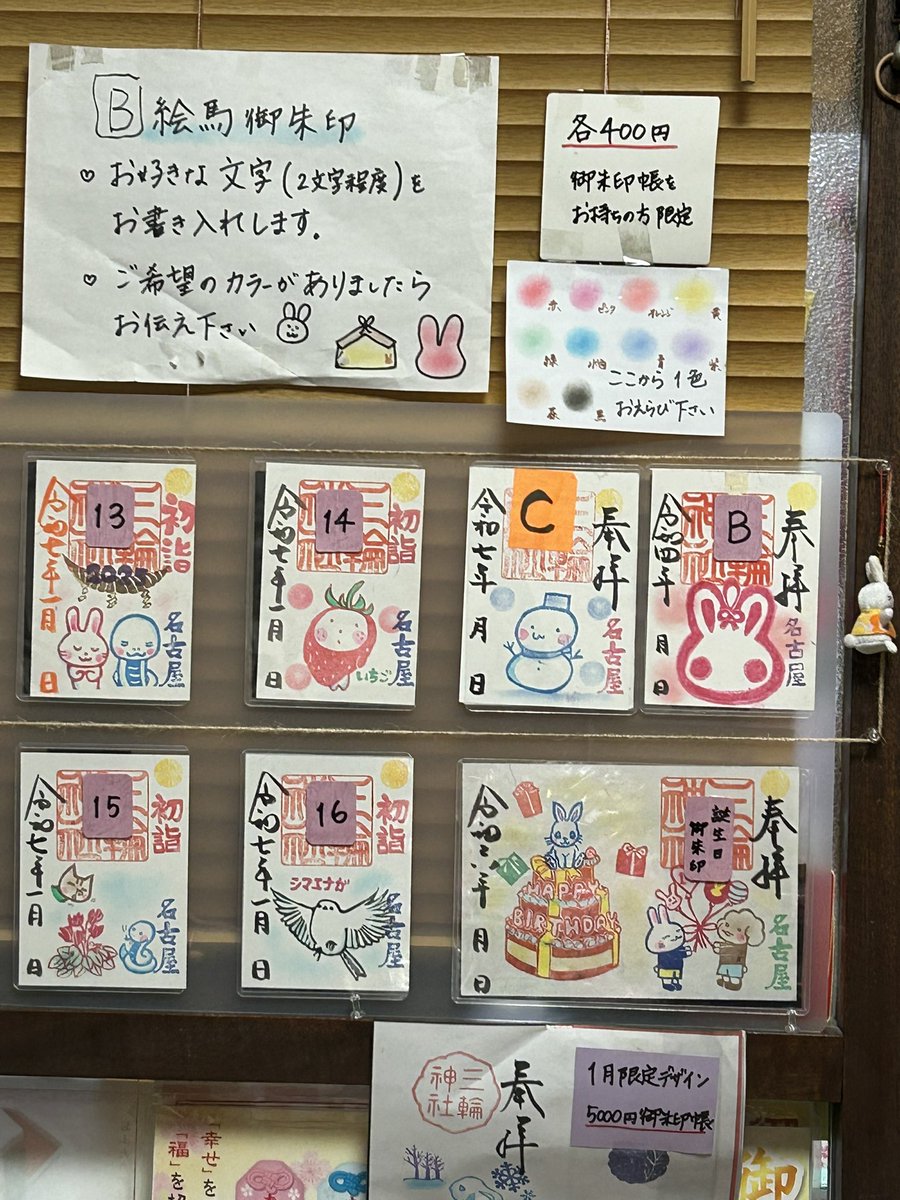 B 絵馬御朱印
♡ お好きな文字(2文字程度)を
お書き入れします。
♡ ご希望のカラーがありましたら
お伝え下さい
各400円
御朱印帳を
お持ちの方限定
赤 ピンク オレンジ 黄
緑 水色 青 紫
茶 黒
ここから1色
おえらび下さい
13
初詣
2025
令和七年一月 日
名古屋
14
初詣
令和七年一月 日
いちご
名古屋
C
奉拝
令和七年 月 日
名古屋
B
奉拝
令和四年 月 日
名古屋
15
初詣
令和七年一月 日
名古屋
16
初詣
令和七年一月 日
シマエナガ
名古屋
誕生日
御朱印
奉拝
HAPPY
BIRTHDAY
名古屋
三輪
神社
奉拝
1月限定デザイン
5000円御朱印帳
「幸せ」を
「福」を
御